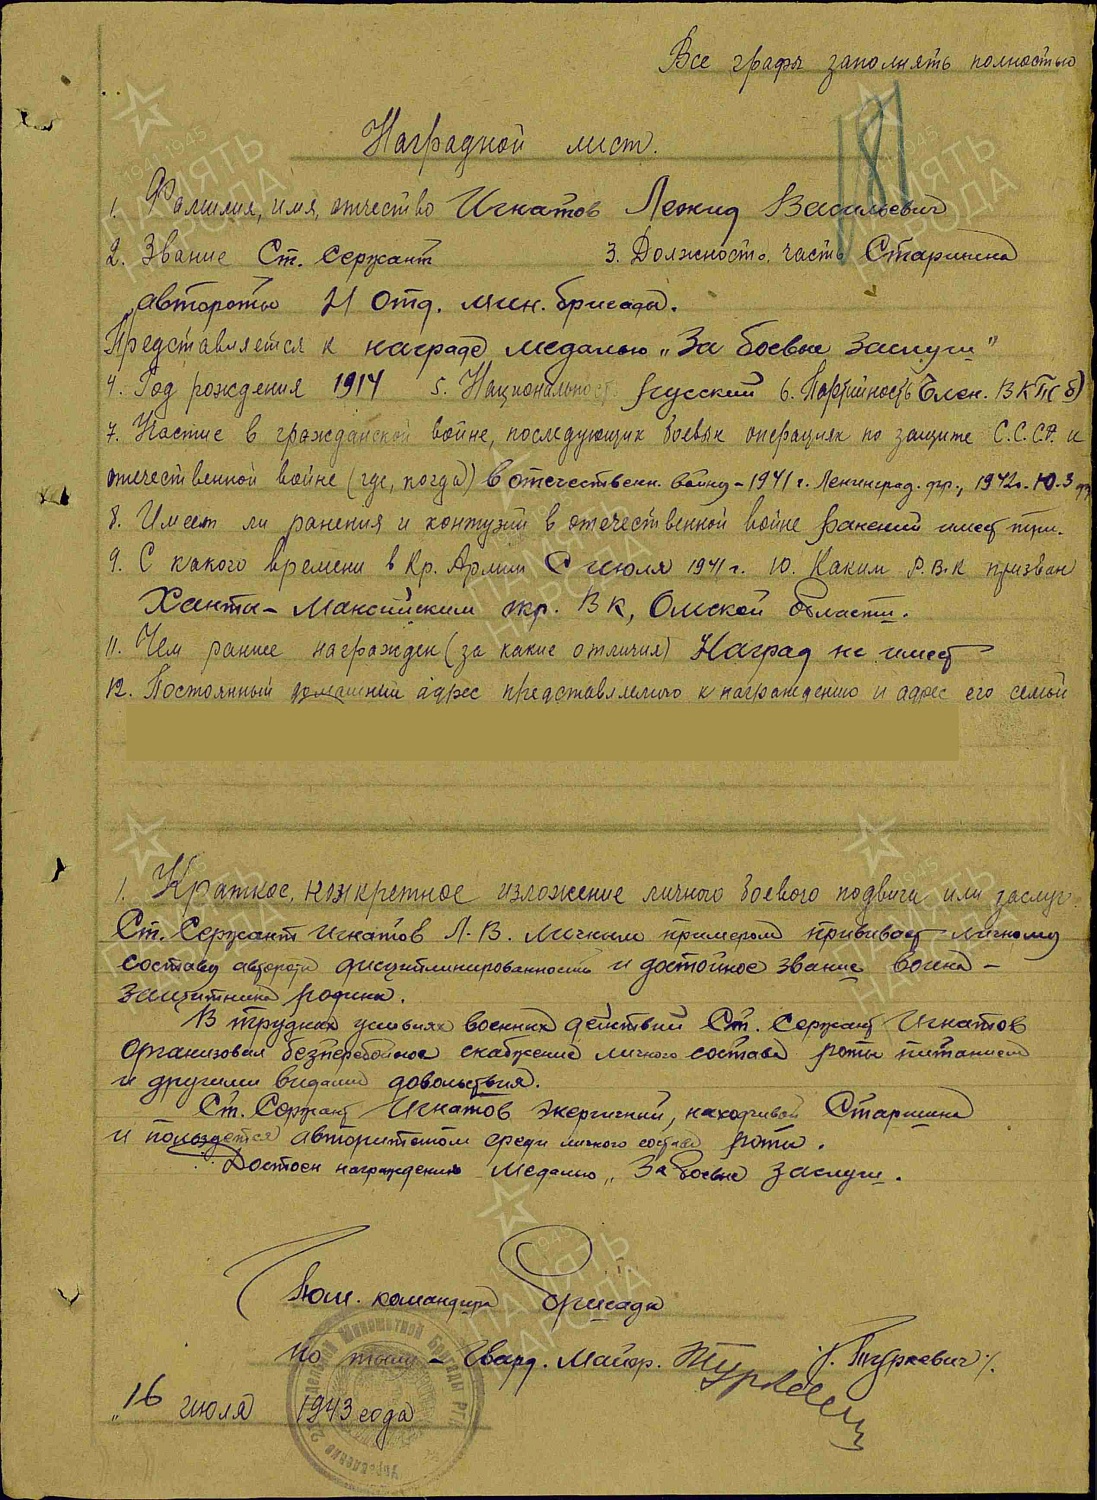 Все графы заполнять полностью
181
Наградной лист.
1. Фамилия, имя, отчество Игнатов Леонид Васильевич
2. Звание Ст. Сержант 3. Должность, часть Старшина
автороты 21 Отд. мин. бригады.
Представляется к награде медалью „За боевые заслуги"
4. Год рождения 1914 5. Национальность русский 6. Партийность Член. ВКП(б)
7. Участие в гражданской войне, последующих боевых операциях по защите С.С.С.Р. и
отечественной войне (где, когда) в отечествен. войну - 1941 г. Ленинград. фр., 1942г. Ю.З. фр.
8. Имеет ли ранения и контузии в отечественной войне ранений имеет три.
9. С какого времени в Кр. Армии С июля 1941 г. 10. Каким Р.В.К призван
Ханты-Мансийским окр. ВК, Омской области.
11. Чем раннее награжден (за какие отличия) Наград не имеет
12. Постоянный домашний адрес представляемого к награждению и адрес его семьи
1. Краткое, конкретное изложение личного боевого подвига или заслуг.
Ст. Сержант Игнатов Л.В. личным примером прививает личному
составу автороты дисциплинированность и достойное звание воина -
защитника родины.
В трудных условиях военных действий Ст. Сержант Игнатов
организовал безперебойное снабжение личного состава роты питанием
и другими видами довольствия.
Ст. Сержант Игнатов энергичный, находчивый Старшина
и пользуется авторитетом среди личного состава роты.
Достоен награждения медалью „За боевые заслуги.
Пом. командира бригады
по тылу - Гвард. Майор. /Туркевич/.
„16 июля 1943 года